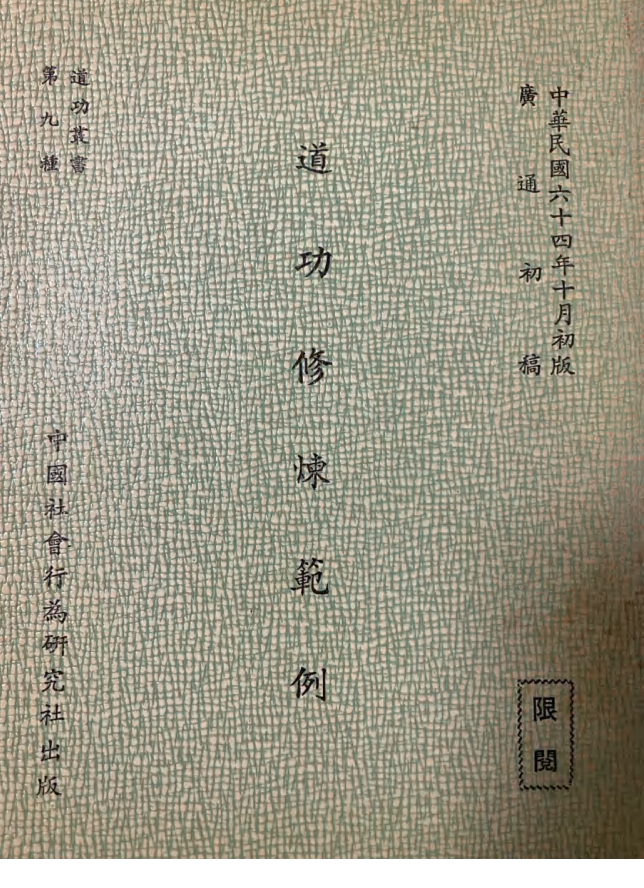 中華民國六十四年十月初版
廣通初稿
限閱
道功修煉範例
道功叢書
第九種
中國社會行為研究社出版